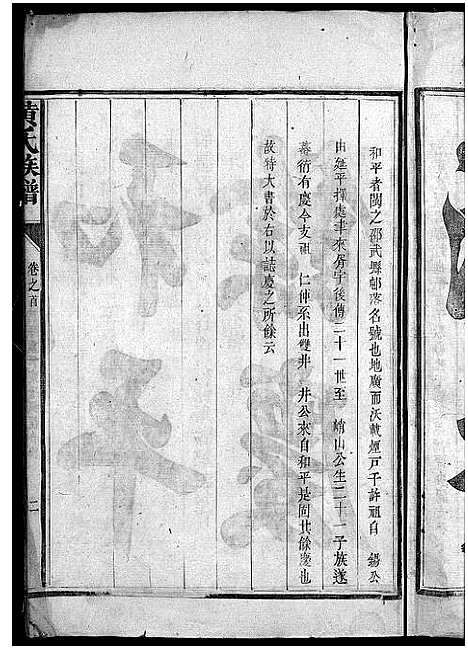 和平者閩之邵武縣邨落名號也地廣而沃載煙戶千許祖自 錫公
由延平擇處聿來胥宇後傳二十一世至 峭山公生二十一子族遂
蕃衍有慶今支祖 仁仲系出雙井 井公來自和平是固其餘慶也
故特大書於右以誌慶之所餘云
黃氏族譜
卷之首
二